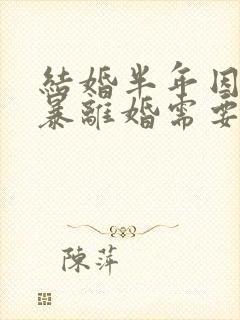 結婚半年因
暴離婚需要
陳萍